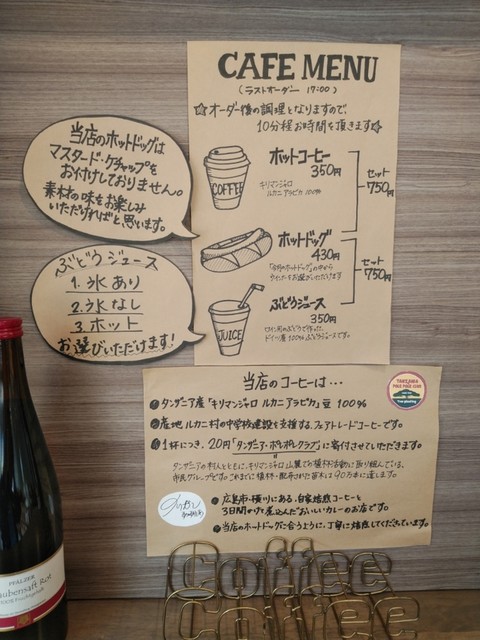 CAFE MENU
(ラストオーダー 17:00)
☆オーダー後の調理となりますので、
10分程お時間を頂きます☆
ホットコーヒー
350円
キリマンジャロ
ルカニ アラビカ 100%
セット
750円
COFFEE
ホットドッグ
430円
セット
750円
ぶどうジュース
350円
ワイン用のぶどうで作った、
ドイツ産100%ぶどうジュースです。
JUICE
当店のホットドッグは
マスタード・ケチャップを
お付けしておりません。
素材の味をお楽しみ
いただければと思います。
ぶどうジュース
1. 氷あり
2. 氷なし
3. ホット
お選びいただけます!
当店のコーヒーは…
タンザニア産「キリマンジャロ ルカニアラビカ」豆 100%
産地 ルカニ村の中学校建設を支援する、フェアトレードコーヒーです。
1杯につき、20円「タンザニア・ポレポレクラブ」に寄付させていただきます。
タンザニアの村人とともに、キリマンジャロ山麓での植林活動に取り組んでいる、
市民グループです。これまでに植林・配布された苗木は90万本に達します。
広島市・横川にある、自家焙煎コーヒーと
3日間かけ煮込んだおいしいカレーのお店です。
当店のホットドッグに合うように、丁寧に焙煎してくださっています。
TANZANIA
POLE POLE CLUB
Tree planting
PFÄLZER
aubensaft Rot
Coffee
Coffee